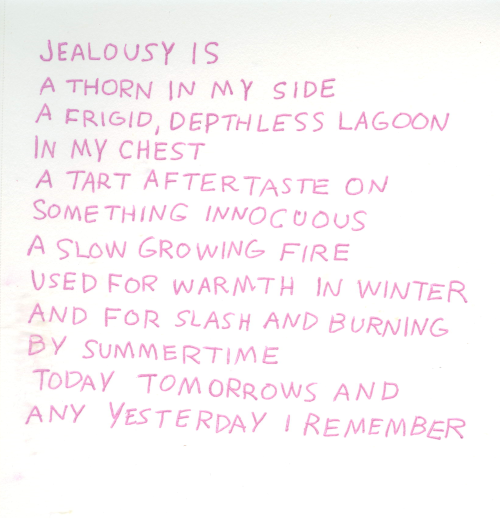 JEALOUSY IS
A THORN IN MY SIDE
A FRIGID, DEPTHLESS LAGOON
IN MY CHEST
A TART AFTERTASTE ON
SOMETHING INNOCUOUS
A SLOW GROWING FIRE
USED FOR WARMTH IN WINTER
AND FOR SLASH AND BURNING
BY SUMMERTIME
TODAY TOMORROWS AND
ANY YESTERDAY I REMEMBER